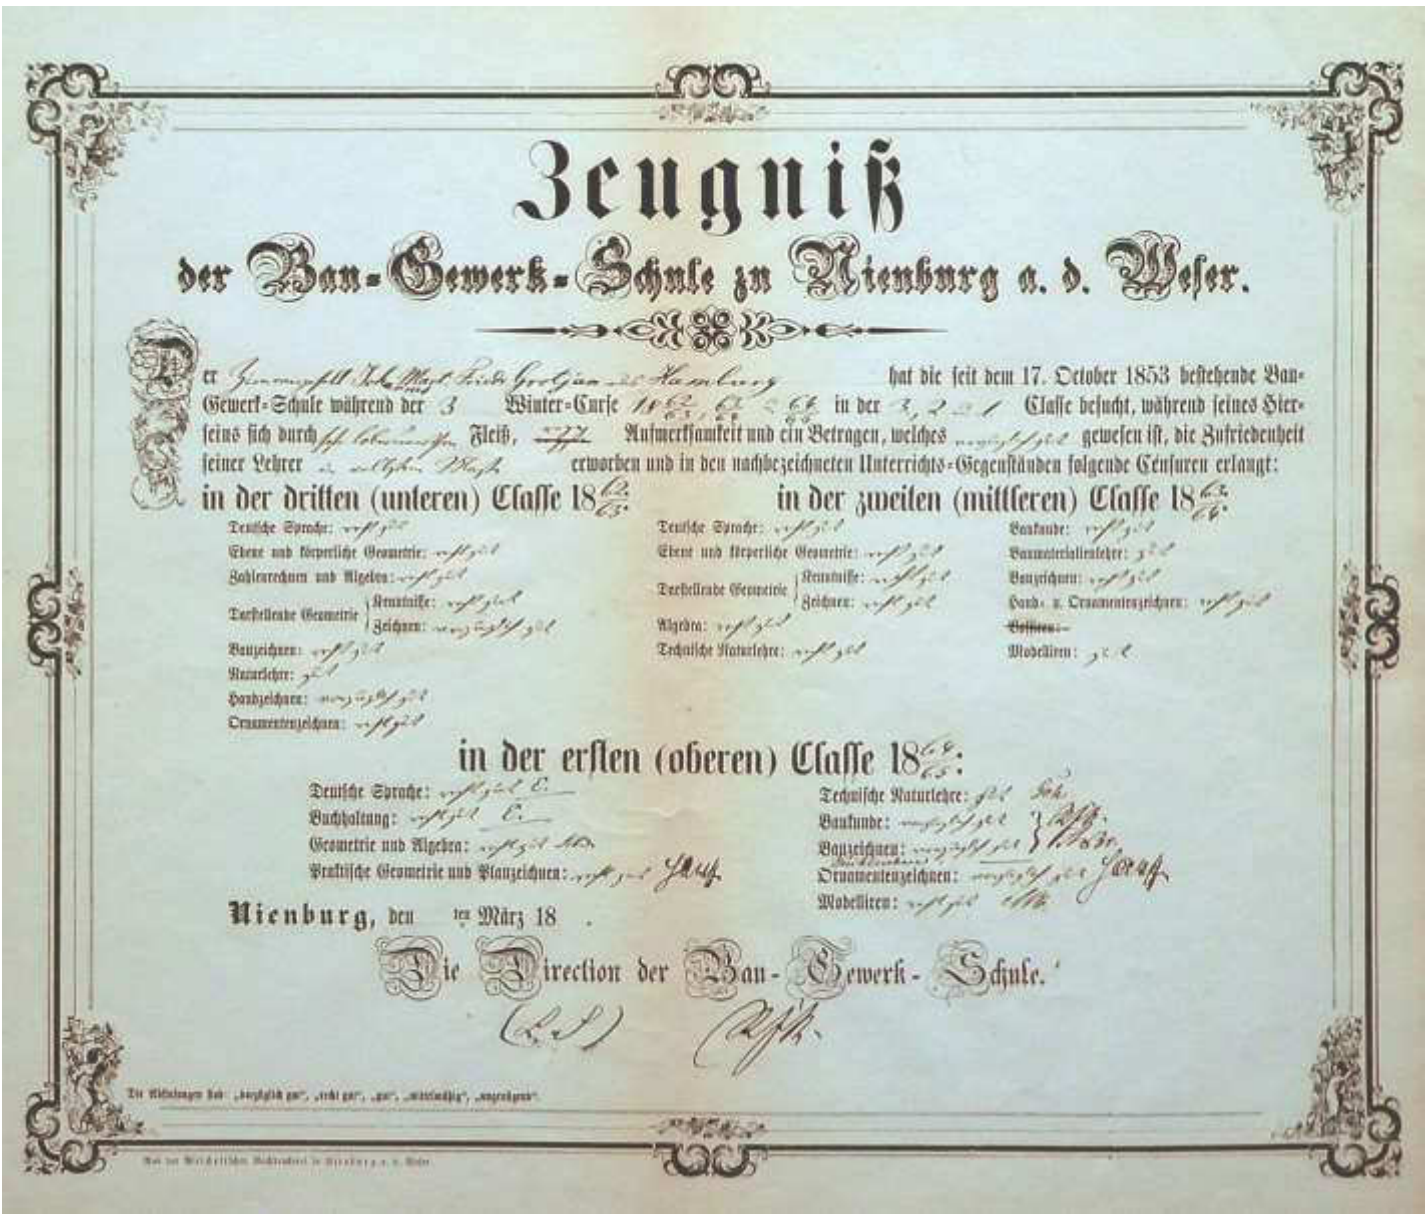 Zeugniß
der Bau-Gewerk-Schule zu Nienburg a. d. Weser.
Der Joh. Grotjan aus Hamburg hat die seit dem 17. October 1853 bestehende Bau-
Gewerk-Schule während der 3 Winter-Curse 18 62/63, 63/64 64/65 in der 3, 2 1 Classe besucht, während seines Hier-
seins sich durch Fleiß, Aufmerksamkeit und ein Betragen, welches vorzüglich gut gewesen ist, die Zufriedenheit
seiner Lehrer erworben und in den nachbezeichneten Unterrichts-Gegenständen folgende Censuren erlangt:
in der dritten (unteren) Classe 18 62/63.
Deutsche Sprache: recht gut
Ebene und körperliche Geometrie: recht gut
Zahlenrechnen und Algebra: recht gut
Darstellende Geometrie { Kenntnisse: recht gut
Zeichnen: vorzüglich gut
Bauzeichnen: recht gut
Naturlehre: gut
Handzeichnen: vorzüglich gut
Ornamentenzeichnen: recht gut
in der zweiten (mittleren) Classe 18 63/64.
Deutsche Sprache: recht gut
Ebene und körperliche Geometrie: recht gut
Darstellende Geometrie { Kenntnisse: recht gut
Zeichnen: recht gut
Algebra: recht gut
Technische Naturlehre: recht gut
Baukunde: recht gut
Baumaterialienlehre: gut
Bauzeichnen: recht gut
Hand- u. Ornamentenzeichnen: recht gut
Modelliren: gut
in der ersten (oberen) Classe 18 64/65:
Deutsche Sprache: recht gut
Buchhaltung: recht gut
Geometrie und Algebra: recht gut
Praktische Geometrie und Planzeichnen: recht gut
Technische Naturlehre: gut
Baukunde: vorzüglich gut
Bauzeichnen: vorzüglich gut
Ornamentenzeichnen: vorzüglich gut
Modelliren: recht gut
Nienburg, den ten März 18 .
Die Direction der Bau-Gewerk-Schule.
Die Abstufungen sind: „vorzüglich gut“, „recht gut“, „gut“, „mittelmäßig“, „ungenügend“.
Aus der Buchdruckerei in Nienburg a. d. Weser.